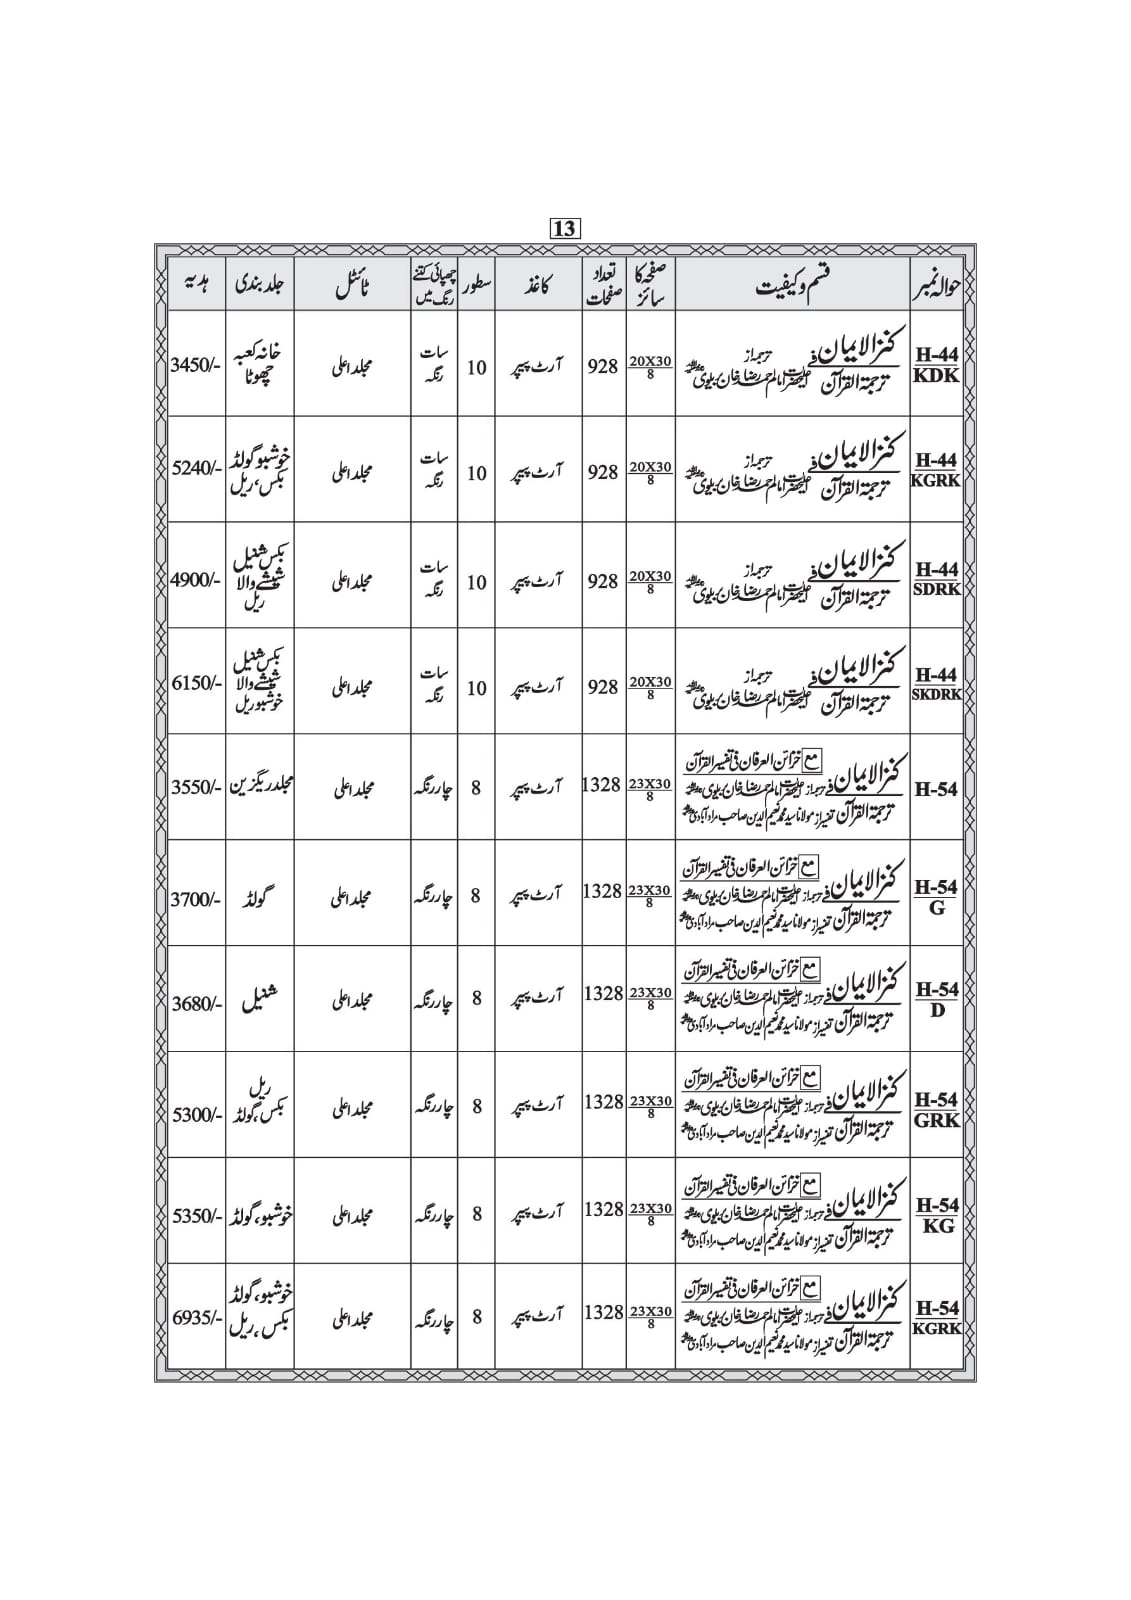 13
حوالہ نمبر قسم و کیفیت صفحہ کا سائز تعداد صفحات کاغذ سطور چھپائی کتنے رنگ میں ٹائٹل جلد بندی ہدیہ
H-44/KDK کنزالایمان فی ترجمۃ القرآن ترجمہ از اعلیٰحضرت امام احمد رضا خان بریلوی 20X30/8 928 آرٹ پیپر 10 سات رنگہ مجلد اعلی خانہ کعبہ چھوٹا 3450/-
H-44/KGRK کنزالایمان فی ترجمۃ القرآن ترجمہ از اعلیٰحضرت امام احمد رضا خان بریلوی 20X30/8 928 آرٹ پیپر 10 سات رنگہ مجلد اعلی خوشبو گولڈ بکس، ریل 5240/-
H-44/SDRK کنزالایمان فی ترجمۃ القرآن ترجمہ از اعلیٰحضرت امام احمد رضا خان بریلوی 20X30/8 928 آرٹ پیپر 10 سات رنگہ مجلد اعلی بکس شنیل شیشے والا ریل 4900/-
H-44/SKDRK کنزالایمان فی ترجمۃ القرآن ترجمہ از اعلیٰحضرت امام احمد رضا خان بریلوی 20X30/8 928 آرٹ پیپر 10 سات رنگہ مجلد اعلی بکس شنیل شیشے والا خوشبو ریل 6150/-
H-54 کنزالایمان فی ترجمۃ القرآن مع خزائن العرفان فی تفسیر القرآن ترجمہ از اعلیٰحضرت امام احمد رضا خان بریلوی تفسیر از مولانا سید محمد نعیم الدین صاحب مراد آبادی 23X30/8 1328 آرٹ پیپر 8 چار رنگہ مجلد اعلی مجلد ریگزین 3550/-
H-54/G کنزالایمان فی ترجمۃ القرآن مع خزائن العرفان فی تفسیر القرآن ترجمہ از اعلیٰحضرت امام احمد رضا خان بریلوی تفسیر از مولانا سید محمد نعیم الدین صاحب مراد آبادی 23X30/8 1328 آرٹ پیپر 8 چار رنگہ مجلد اعلی گولڈ 3700/-
H-54/D کنزالایمان فی ترجمۃ القرآن مع خزائن العرفان فی تفسیر القرآن ترجمہ از اعلیٰحضرت امام احمد رضا خان بریلوی تفسیر از مولانا سید محمد نعیم الدین صاحب مراد آبادی 23X30/8 1328 آرٹ پیپر 8 چار رنگہ مجلد اعلی شنیل 3680/-
H-54/GRK کنزالایمان فی ترجمۃ القرآن مع خزائن العرفان فی تفسیر القرآن ترجمہ از اعلیٰحضرت امام احمد رضا خان بریلوی تفسیر از مولانا سید محمد نعیم الدین صاحب مراد آبادی 23X30/8 1328 آرٹ پیپر 8 چار رنگہ مجلد اعلی ریل بکس، گولڈ 5300/-
H-54/KG کنزالایمان فی ترجمۃ القرآن مع خزائن العرفان فی تفسیر القرآن ترجمہ از اعلیٰحضرت امام احمد رضا خان بریلوی تفسیر از مولانا سید محمد نعیم الدین صاحب مراد آبادی 23X30/8 1328 آرٹ پیپر 8 چار رنگہ مجلد اعلی خوشبو، گولڈ 5350/-
H-54/KGRK کنزالایمان فی ترجمۃ القرآن مع خزائن العرفان فی تفسیر القرآن ترجمہ از اعلیٰحضرت امام احمد رضا خان بریلوی تفسیر از مولانا سید محمد نعیم الدین صاحب مراد آبادی 23X30/8 1328 آرٹ پیپر 8 چار رنگہ مجلد اعلی خوشبو، گولڈ بکس، ریل 6935/-